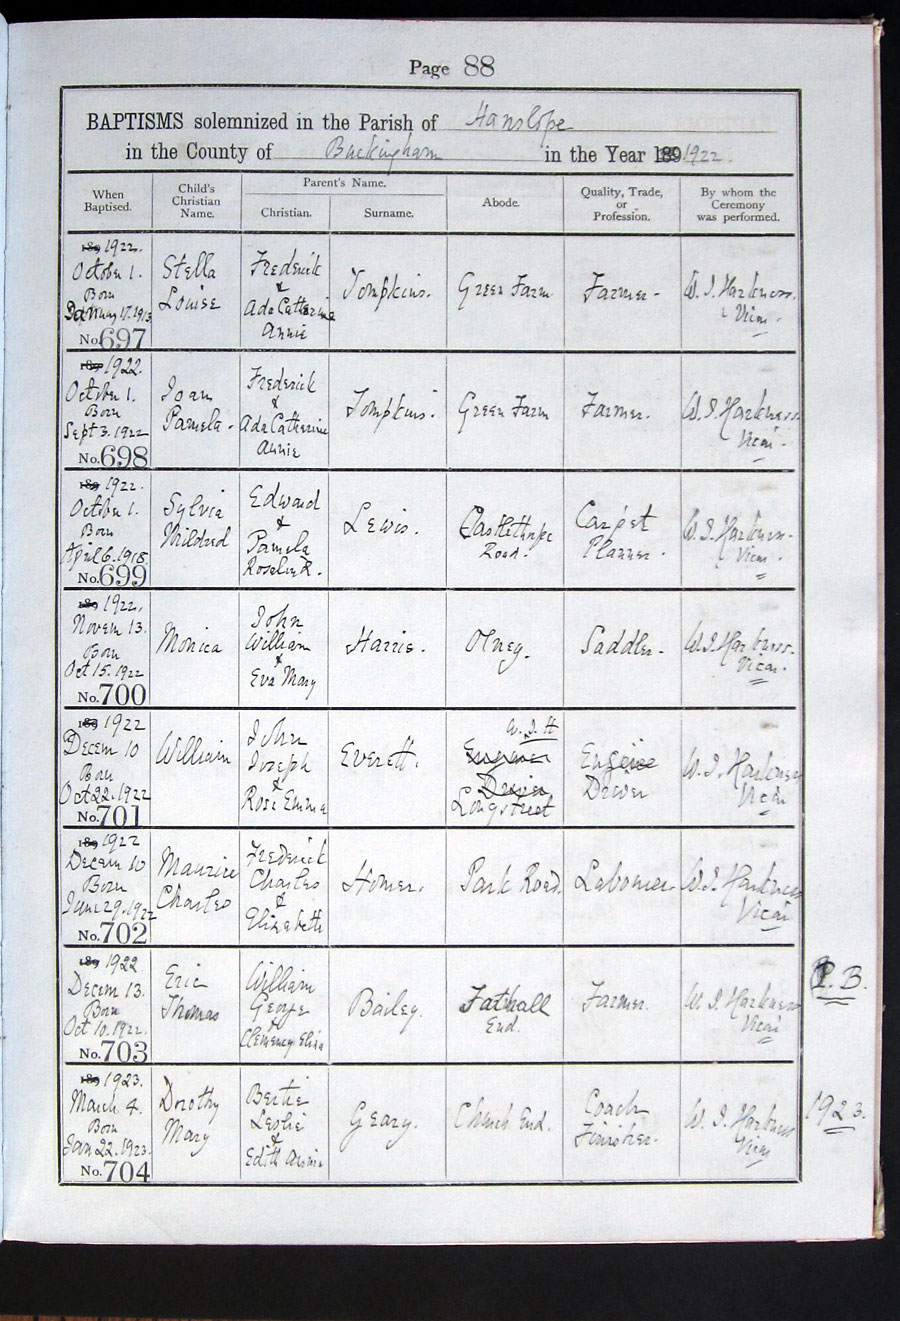 Page 88
BAPTISMS solemnized in the Parish of Hanslope
in the County of Buckingham in the Year 189 1922.
When Baptised. Child's Christian Name. Parent's Name. Abode. Quality, Trade, or Profession. By whom the Ceremony was performed.
Christian. Surname.
189 1922.
October 1.
Born
17. 1913
No. 697
Stella
Louise
Frederick
&
Ada Catherine
Annie
Tompkins.
Green Farm
Farmer-
W. J. Harkness.
Vicar.
189 1922.
October 1.
Born
Sept 3. 1922
No. 698
Joan
Pamela.
Frederick
&
Ada Catherine
Annie
Tompkins.
Green Farm
Farmer.
W. J. Harkness
Vicar.
189 1922.
October 1.
Born
April 6. 1918.
No. 699
Sylvia
Mildred
Edward
&
Pamela
Rosalie R.
Lewis.
Castlethorpe
Road.
Carpet
Planner.
W. J. Harkness.
Vicar.
189 1922,
Novem 13.
Born
Oct 15. 1922
No. 700
Monica
John
William
&
Eva Mary
Harris.
Olney.
Saddler.
W. J. Harkness.
Vicar.
189 1922
Decem 10
Born
Oct 22. 1922
No. 701
William
John
Joseph
&
Rose Emma
Everett.
W. J. H
Engine
Driver
Longstreet
Engine
Driver
W. J. Harkness
Vicar
189 1922
Decem 10
Born
June 29. 1922
No. 702
Maurice
Charles
Frederick
Charles
&
Elizabeth
Homer.
Park Road.
Labourer
W. J. Harkness
Vicar
189 1922
Decem 13.
Born
Oct 10. 1922.
No. 703
Eric
Thomas
William
George
&
Clemency Eliza
Bailey.
Tathall
End.
Farmer.
W J Harkness
Vicar
P. B.
189 1923.
March 4.
Born
Jan 22. 1923.
No. 704
Dorothy
Mary
Bertie
Leslie
&
Edith Annie
Geary.
Church End.
Coach
Finisher.
W. J. Harkness
Vicar
1923.